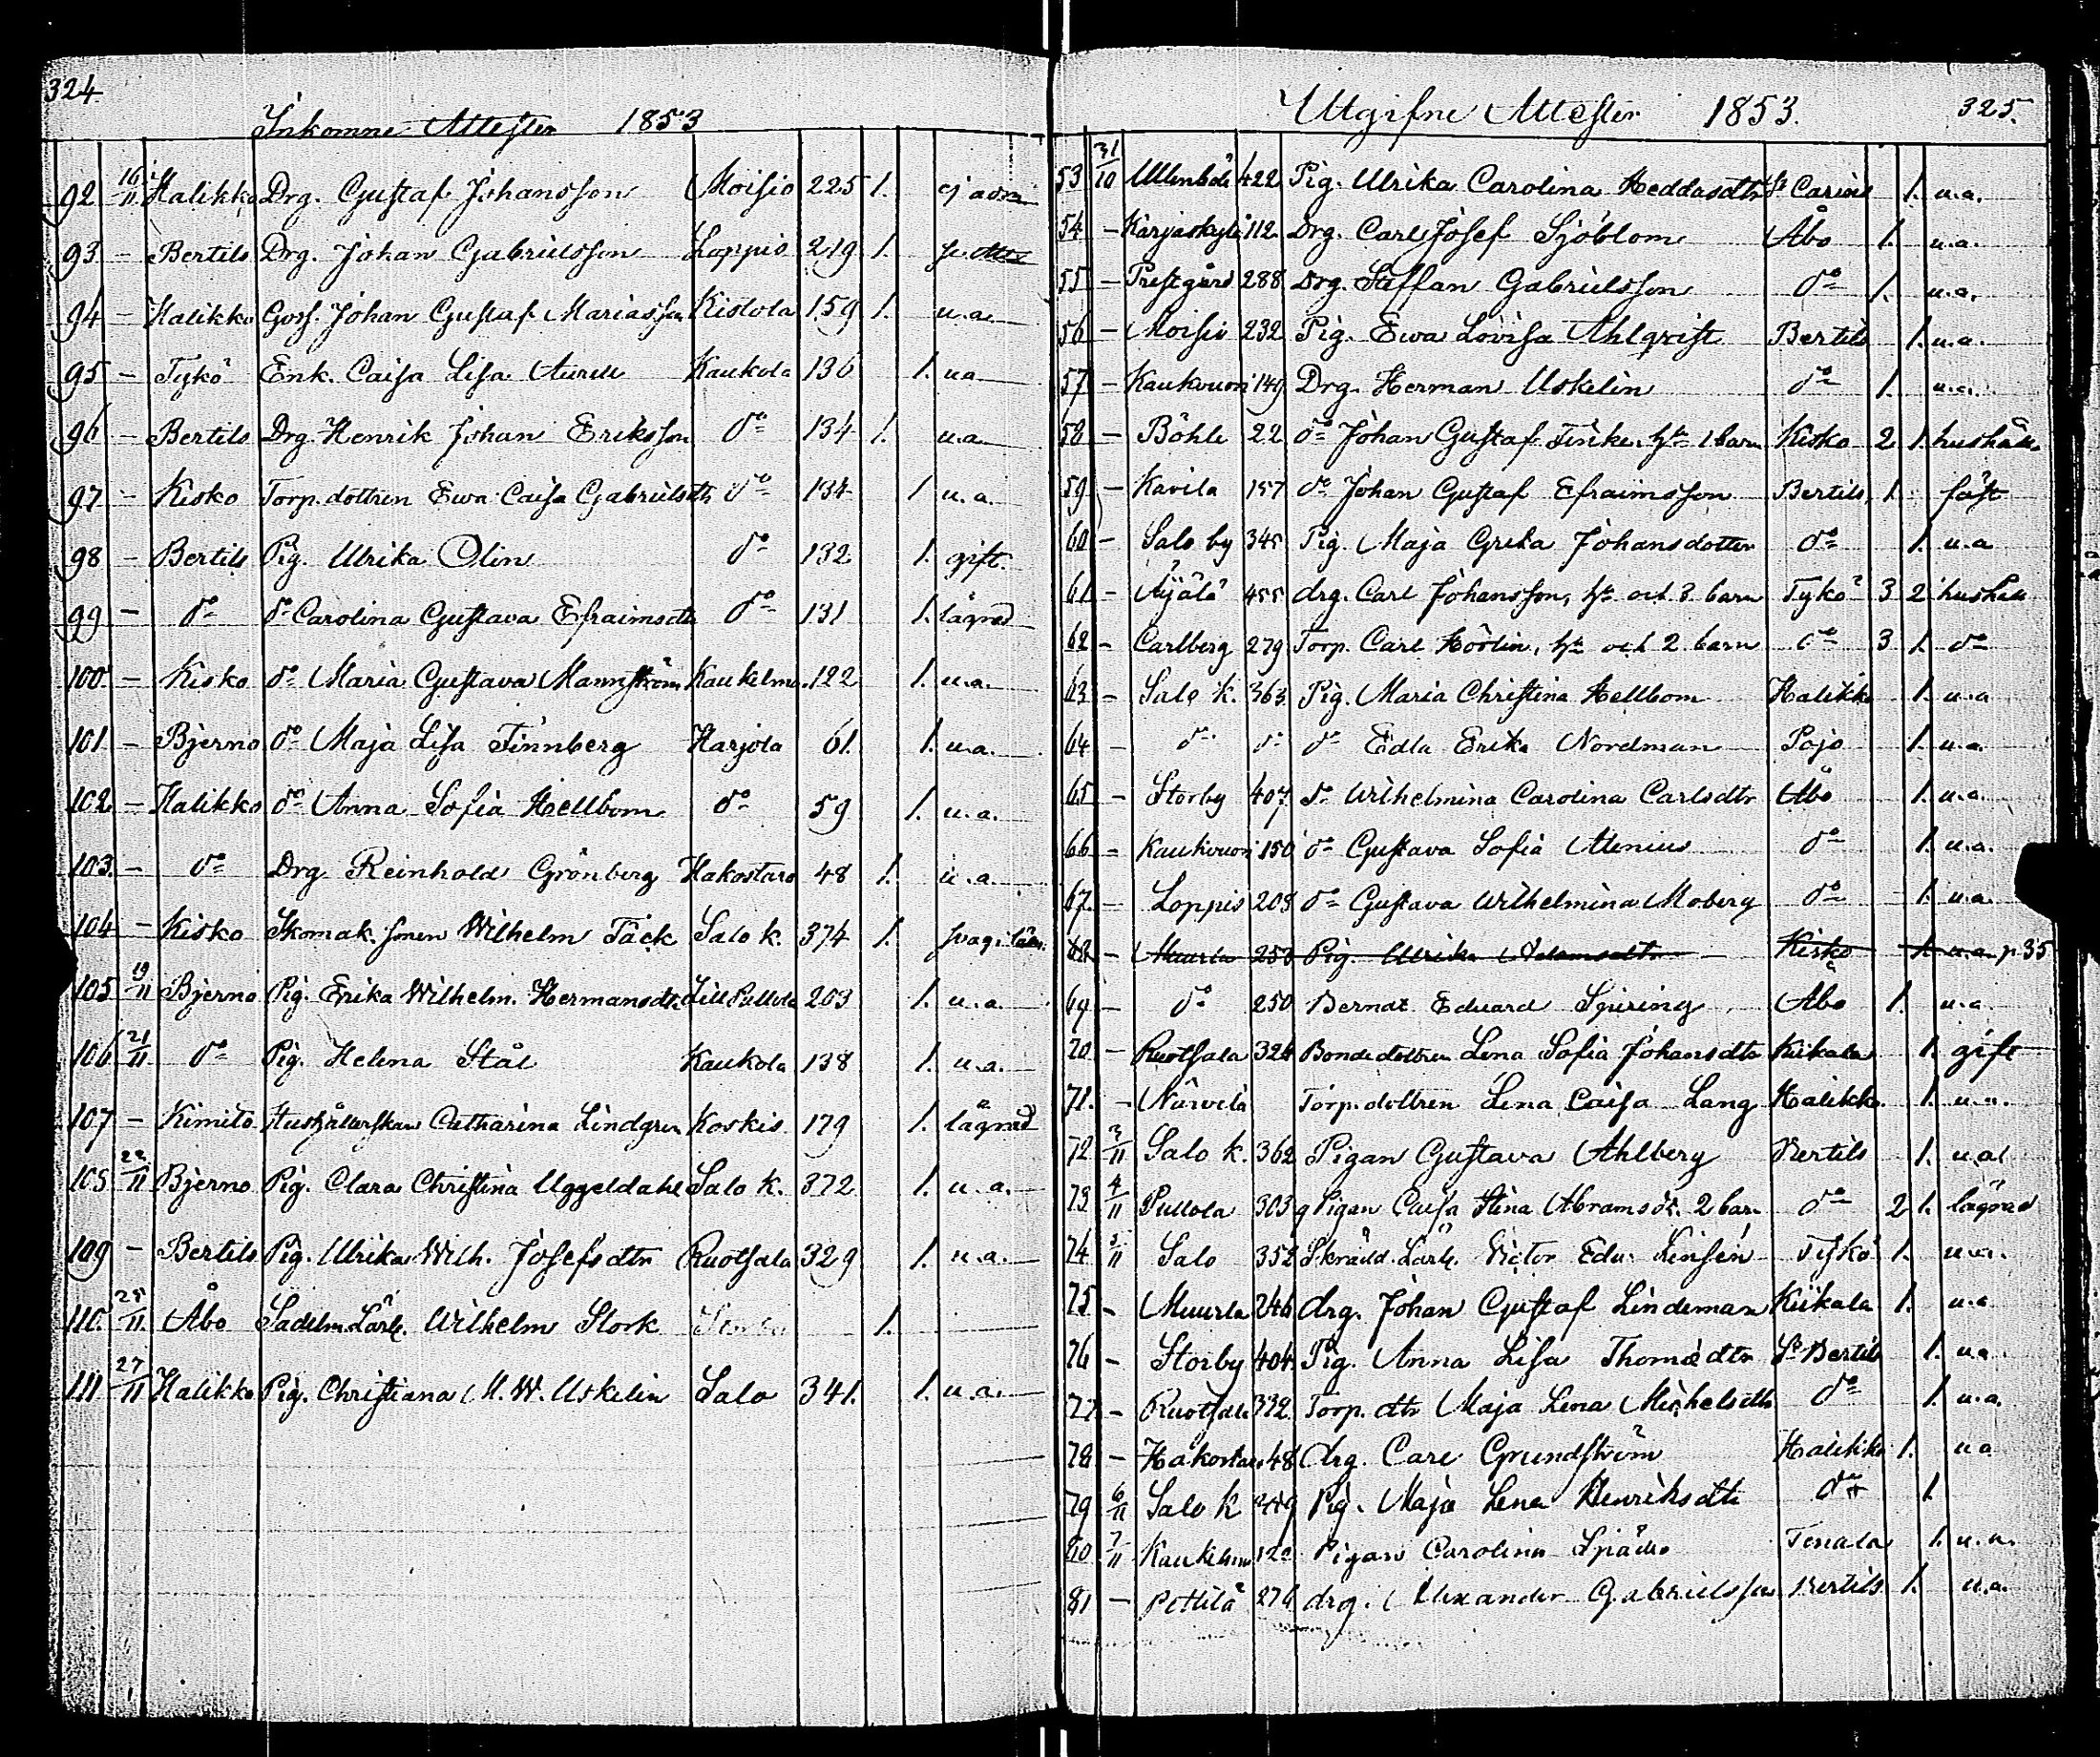 324
Inkomne Attester 1853
92 16/11 Halikko Drg. Gustaf Johansson Moisio 225 1. ej adm
93 – Bertils Drg. Johan Gabrielsson Loppis 219 1.
94 – Halikko Goss. Johan Gustaf Mariasson Kistola 159 1. u.a.
95 – Tykö Enk. Caisa Lisa Aurell Kaukola 136 1. u a
96 – Bertils Drg. Henrik Johan Eriksson do 134 1. u.a.
97 – Kisko Torp. dottren Ewa Caisa Gabrielsdtr do 134 1 u.a.
98 – Bertils Pig. Ulrika Olin do 132 1. gift.
99 – do do Carolina Gustava Efraimsdtr do 131 1. lägrad
100 – Kisko do Maria Gustava Mannström Kaukelmo. 122 1. u.a.
101 – Bjerno do Maja Lisa Finnberg Karjola 61. 1. u.a.
102 – Halikko do Anna Sofia Hellbom do 59 1. u.a.
103. – do Drg Reinhold Grönberg Hakostaro 48 1. u.a.
104 – Kisko Skomak. sonen Wilhelm Täck Salo k. 374 1. svag i läsn.
105 19/11 Bjerno Pig. Erika Wilhelm. Hermansdtr Lill Pullola 203 1. u.a.
106 21/11 do Pig. Helena Stål Kaukola 138 1. u.a.
107 – Kimito Hushållerskan Catharina Lindgren Koskis 179 1. lägrad
108 22/11 Bjerno Pig. Clara Christina Uggeldahl Salo k. 372 1. u.a.
109 – Bertils Pig. Ulrika Wilh. Josefsdtr Ruotsala 329 1. u.a.
110. 25/11. Åbo Sadelm. Lärl. Wilhelm Stork 1.
111 27/11 Halikko Pig. Christiana M. W. Uskelin Salo 341. 1. u.a.
Utgifne Attester 1853. 325.
53 31/10 422 Pig. Ulrika Carolina Heddasdtr St Carins 1. u.a.
54 – Karjaskylä 112 Drg. Carl Josef Sjöblom Åbo 1. u.a.
55 – Prestgård 288 Drg. Staffan Gabrielsson do 1. u.a.
56 – Moisio 232 Pig. Ewa Lovisa Ahlqvist Bertils 1. u.a.
57 – Kaukvuori 149 Drg. Herman Uskelin do 1. u.a.
58 – Böhle 22 do Johan Gustaf Finke, h. 1 barn Kisko 2 1. hushåll
59 – Kavila 157 do Johan Gustaf Efraimsson Bertils 1. fäst
60 – Salo by 345 Pig. Maja Greta Johansdotter do 1. u.a
61 – Äijälä 455 drg. Carl Johansson, h. och 3 barn Tykö 3 2 hushåll
62 – Carlberg 279 Torp. Carl Hördin, h. och 2 barn do 3 1. do
63 – Salo k. 363. Pig. Maria Christina Hellbom Halikko 1. u.a
64 – do do do Edla Erika Nordman Pojo 1. u.a.
65 – Storby 407. do Wilhelmina Carolina Carlsdtr Åbo 1. u.a.
66 – Kaukvuori 150 do Gustava Sofia Alenius do 1. u.a.
67. – Loppis 208 do Gustava Wilhelmina Moberg do 1. u.a.
68. – Muurla 253 Pig. Ulrika Adamsdtr Kisko 1. u.a. p. 35
69 – do 250 Berndt Eduard Spiring Åbo 1. u.a
70 – Ruotsala 324 Bondedottren Lena Sofia Johansdtr Kiikala 1. gift
71. – Närvilä Torp. dottren Lena Caisa Lang Halikko. 1. u.a.
72 3/11 Salo k. 362 Pigan Gustava Ahlberg Bertils 1. u.a
73 4/11 Pullola 303 Pigan Caisa Stina Abramsdr. 2 barn do 2 1. lägrad
74 5/11 Salo 352 Skrädd. Lärl. Victor Edv. Linsén Tykö 1. u.a.
75 – Muurla 246 drg. Johan Gustaf Lindeman Kiikala 1. u.a
76 – Storby 404 Pig. Anna Lisa Thomædtr St Bertils 1. u.a.
77 – Ruotsala 332 Torp. dtr Maja Lena Michelsdtr do 1. u.a.
78 – Hakostaro 48 drg. Carl Grundström Halikko 1. u.a
79 6/11 Salo k Pig. Maja Lena Henriksdtr do 1.
80 7/11 Kaukelmo 122 Pigan Carolina Tenala 1. u.a.
81 – Pettilä 276 drg. Alexander Gabrielsson Bertils 1. u.a.